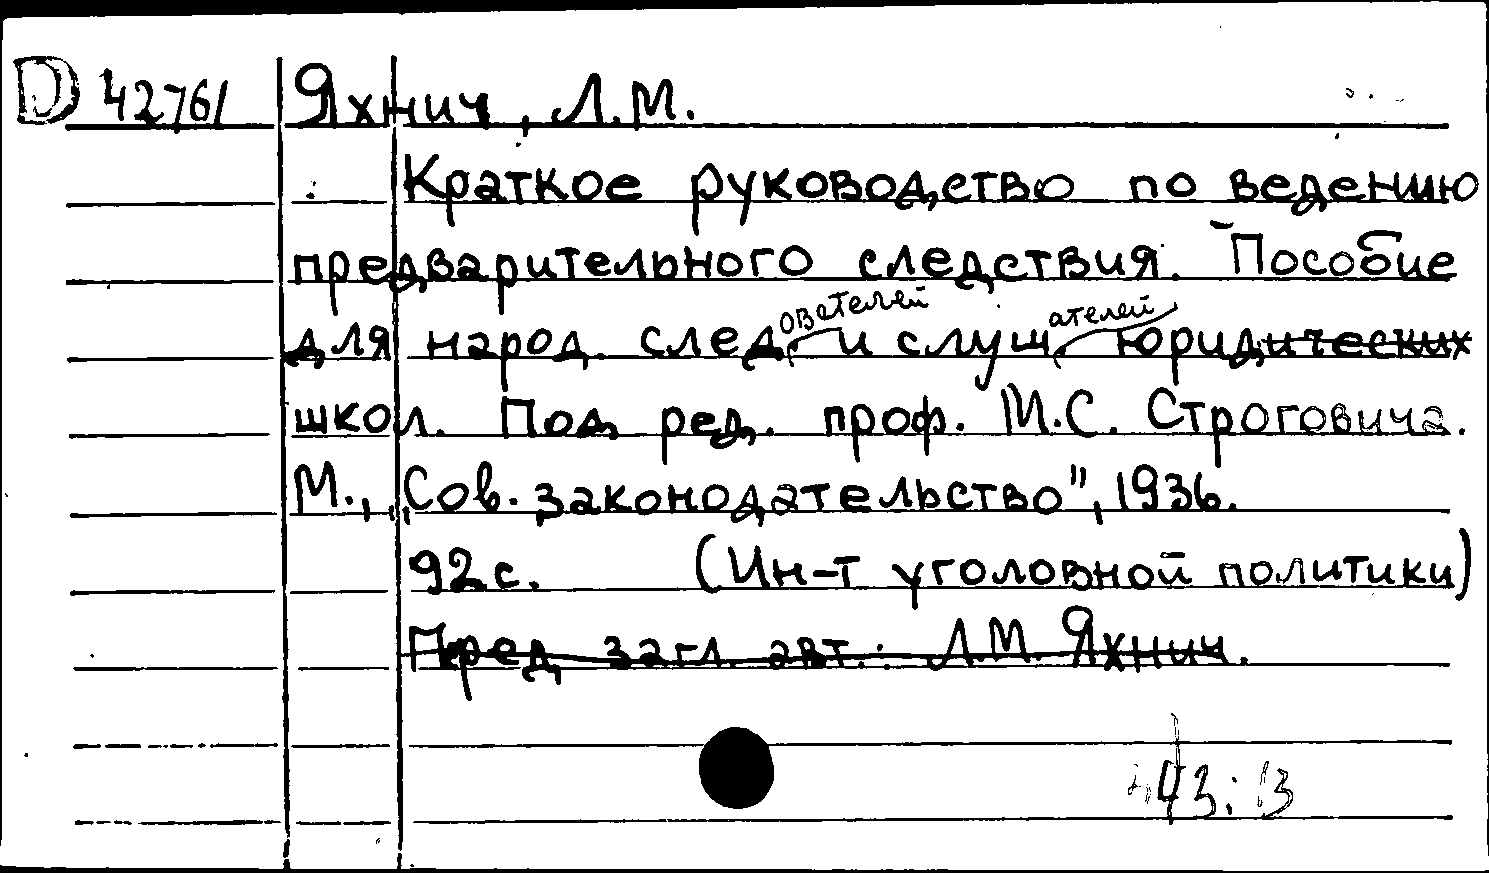 D 42761 Яхнич, Л.М.
Краткое руководство по ведению
предварительного следствия. Пособие
для народ. следователей и слушателей юридических
школ. Под ред. проф. М.С. Строговича.
М., „Сов. законодательство", 1936.
92 с. (Ин-т уголовной политики)
Перед загл. авт.: Л.М. Яхнич.